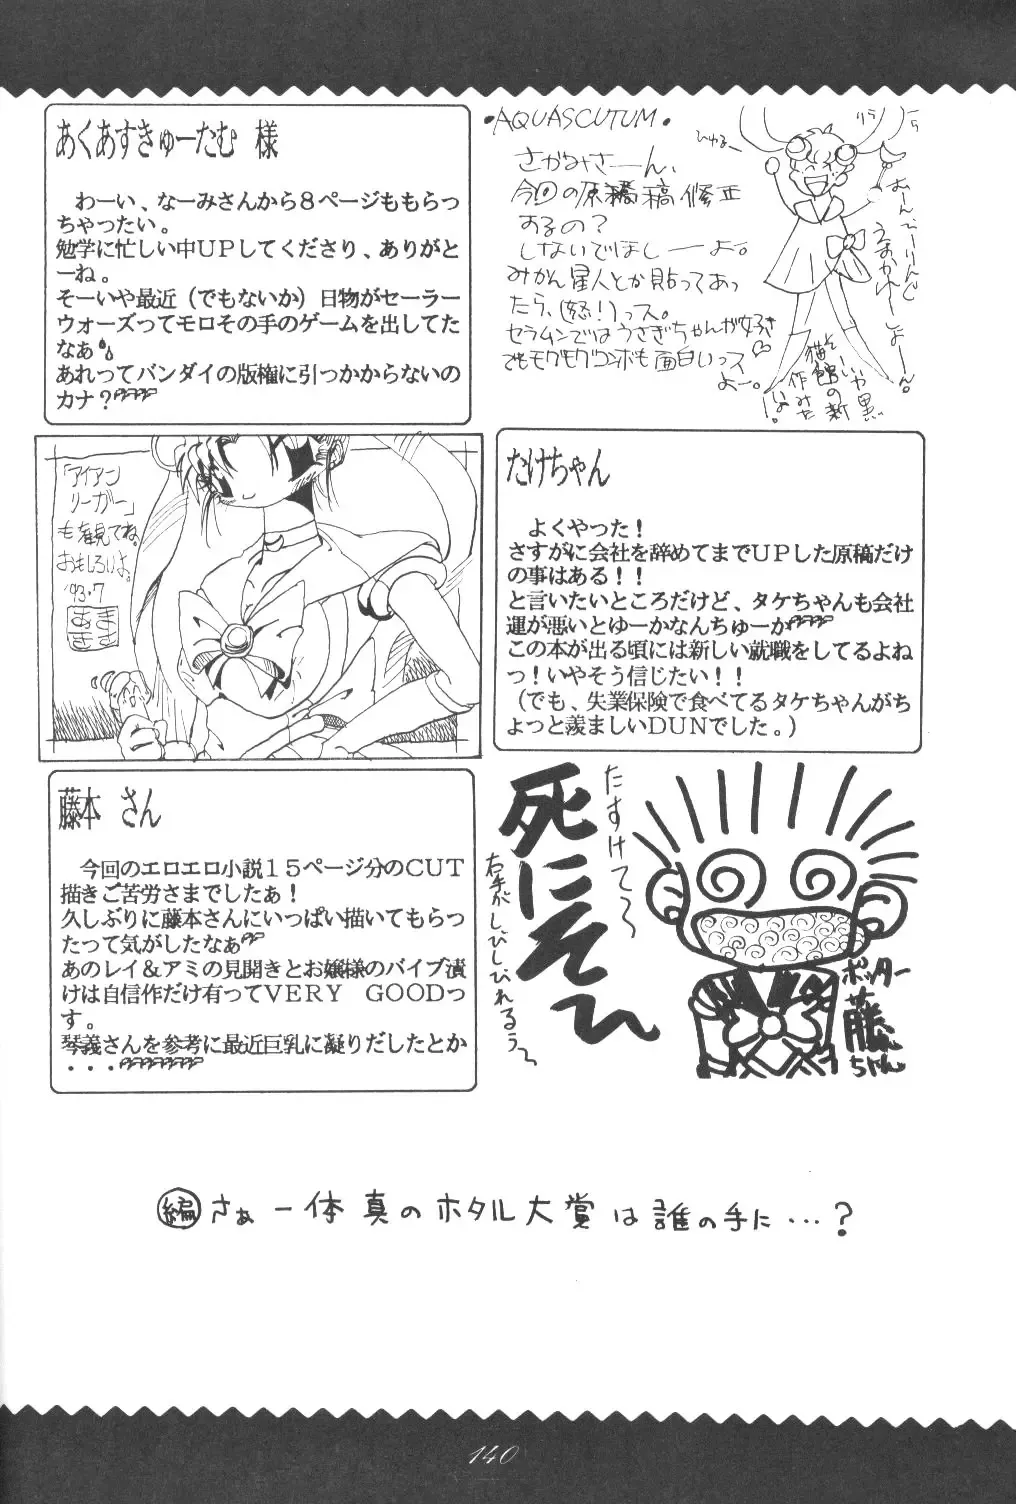 あくあすきゅーたむ 様
わーい、なーみさんから８ページももらっ
ちゃったい。
勉学に忙しい中ＵＰしてくださり、ありがと
ーね。
そーいや最近（でもないか）日物がセーラー
ウォーズってモロその手のゲームを出してた
なぁ
あれってバンダイの版権に引っかからないの
カナ？
・AQUASCUTUM・
さかみさーん、
今回の原稿修正
するの？
しないでほしーよ。
みかん星人とか貼ってあっ
たら、(怒！)っス。
セラムンではうさぎちゃんが好き
でもモグモグコンボも面白いっス
よー。
ひゅるー
そーいや黒
猫館の新
作みた
いな！
「アイアン
リーガー」
も観てね。
おもしろいよ。
'93.7
たけちゃん
よくやった！
さすがに会社を辞めてまでＵＰした原稿だけ
の事はある！！
と言いたいところだけど、タケちゃんも会社
運が悪いとゆーかなんちゅーか
この本が出る頃には新しい就職をしてるよね
っ！いやそう信じたい！！
（でも、失業保険で食べてるタケちゃんがち
ょっと羨ましいＤＵＮでした。）
藤本 さん
今回のエロエロ小説１５ページ分のＣＵＴ
描きご苦労さまでしたぁ！
久しぶりに藤本さんにいっぱい描いてもらっ
たって気がしたなぁ
あのレイ＆アミの見開きとお嬢様のバイブ漬
けは自信作だけ有ってＶＥＲＹ ＧＯＯＤっ
す。
琴義さんを参考に最近巨乳に凝りだしたとか
・・・
たすけて〜
死にそう
右手がしびしびれるぅ〜
ポッター
藤
ちゃん
編 さぁ 一体 真の ホタル大賞 は 誰の手に…？
140